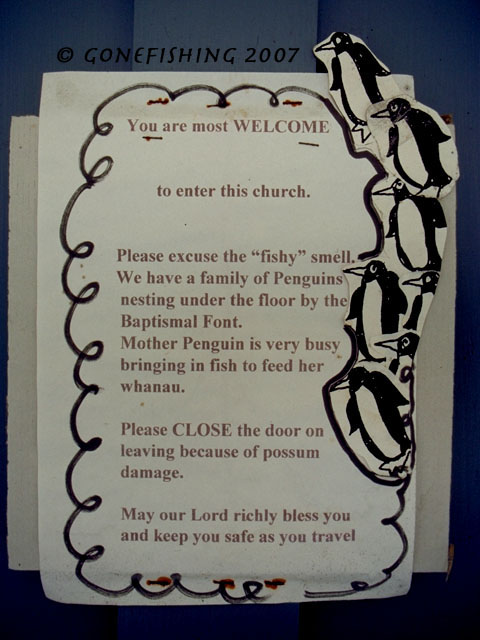 © GONEFISHING 2007
You are most WELCOME
to enter this church.
Please excuse the “fishy” smell.
We have a family of Penguins
nesting under the floor by the
Baptismal Font.
Mother Penguin is very busy
bringing in fish to feed her
whanau.
Please CLOSE the door on
leaving because of possum
damage.
May our Lord richly bless you
and keep you safe as you travel